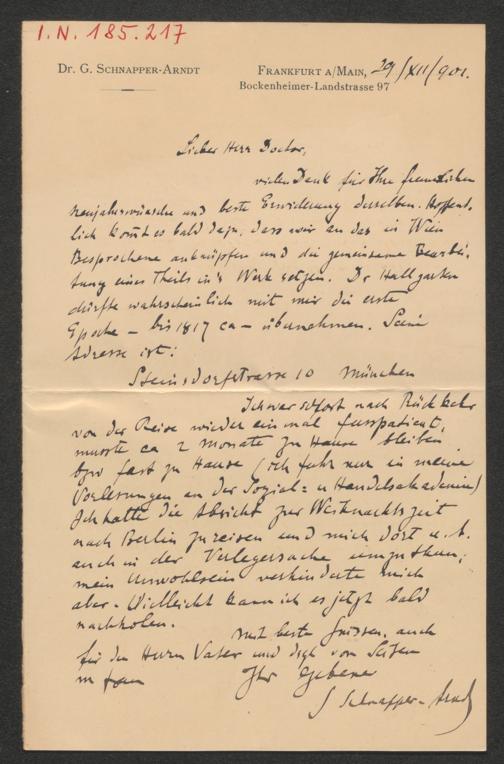 I.N. 185.217
Dr. G. Schnapper-Arndt
Frankfurt a/Main, 29/XII/901.
Bockenheimer-Landstrasse 97
Lieber Herr Doctor,
vielen Dank für Ihre freundlichen
Neujahrswünsche und beste Erwiderung derselben. Hoffent-
lich kommt es bald dazu, dass wir an das in Wien
Besprochene anknüpfen und die gemeinsame Bearbei-
tung eines Theils in's Werk setzen. Dr Hallgarten
dürfte wahrscheinlich mit mir die erste
Epoche – bis 1817 ca – übernehmen. Seine
Adresse ist:
Steinsdorfstrasse 10 München
Ich war sofort nach Rückkehr
von der Reise wieder einmal fusspatient,
musste ca 2 Monate zu Hause bleiben
bzw fast zu Hause (ich fuhr nur in meine
Vorlesungen an der Sozial- u Handelsakademie)
Ich hatte die Absicht zur Weihnachtszeit
nach Berlin zu reisen und mich dort u. A.
auch in der Verlegersache umzuthun;
mein Unwohlsein verhinderte mich
aber. Vielleicht kann ich es jetzt bald
nachholen.
Mit besten Grüssen, auch
für den Herrn Vater und dsgl von Seiten
m Frau Ihr ergebener
G Schnapper-Arndt